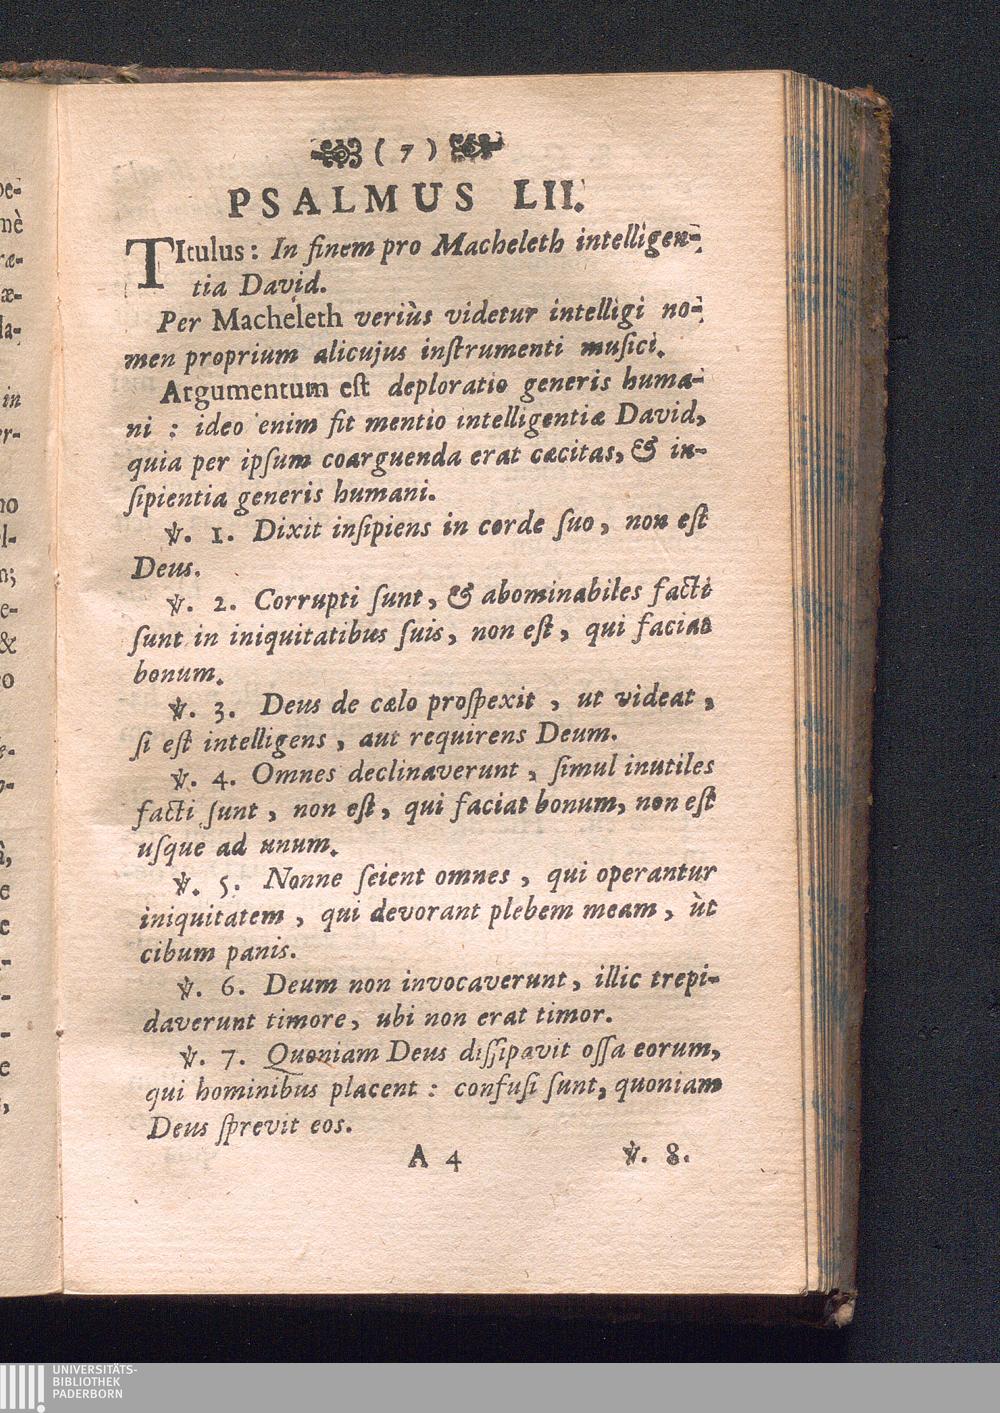 ( 7 )
PSALMUS LII.
TItulus: In finem pro Macheleth intelligen-
tia David.
Per Macheleth veriùs videtur intelligi no-
men proprium alicujus inſtrumenti muſici.
Argumentum eſt deploratio generis huma-
ni : ideo enim fit mentio intelligentiæ David,
quia per ipſum coarguenda erat cæcitas, & in-
ſipientia generis humani.
℣. 1. Dixit inſipiens in corde ſuo, non eſt
Deus.
℣. 2. Corrupti ſunt, & abominabiles facti
ſunt in iniquitatibus ſuis, non eſt, qui faciat
bonum.
℣. 3. Deus de cælo proſpexit , ut videat ,
ſi eſt intelligens , aut requirens Deum.
℣. 4. Omnes declinaverunt , ſimul inutiles
facti ſunt , non eſt, qui faciat bonum, non eſt
uſque ad unum.
℣. 5. Nonne ſcient omnes , qui operantur
iniquitatem , qui devorant plebem meam, ùt
cibum panis.
℣. 6. Deum non invocaverunt, illic trepi-
daverunt timore, ubi non erat timor.
℣. 7. Quoniam Deus diſſipavit oſſa eorum,
qui hominibus placent : confuſi ſunt, quoniam
Deus ſprevit eos.
A 4 ℣. 8.
UNIVERSITÄTS-
BIBLIOTHEK
PADERBORN